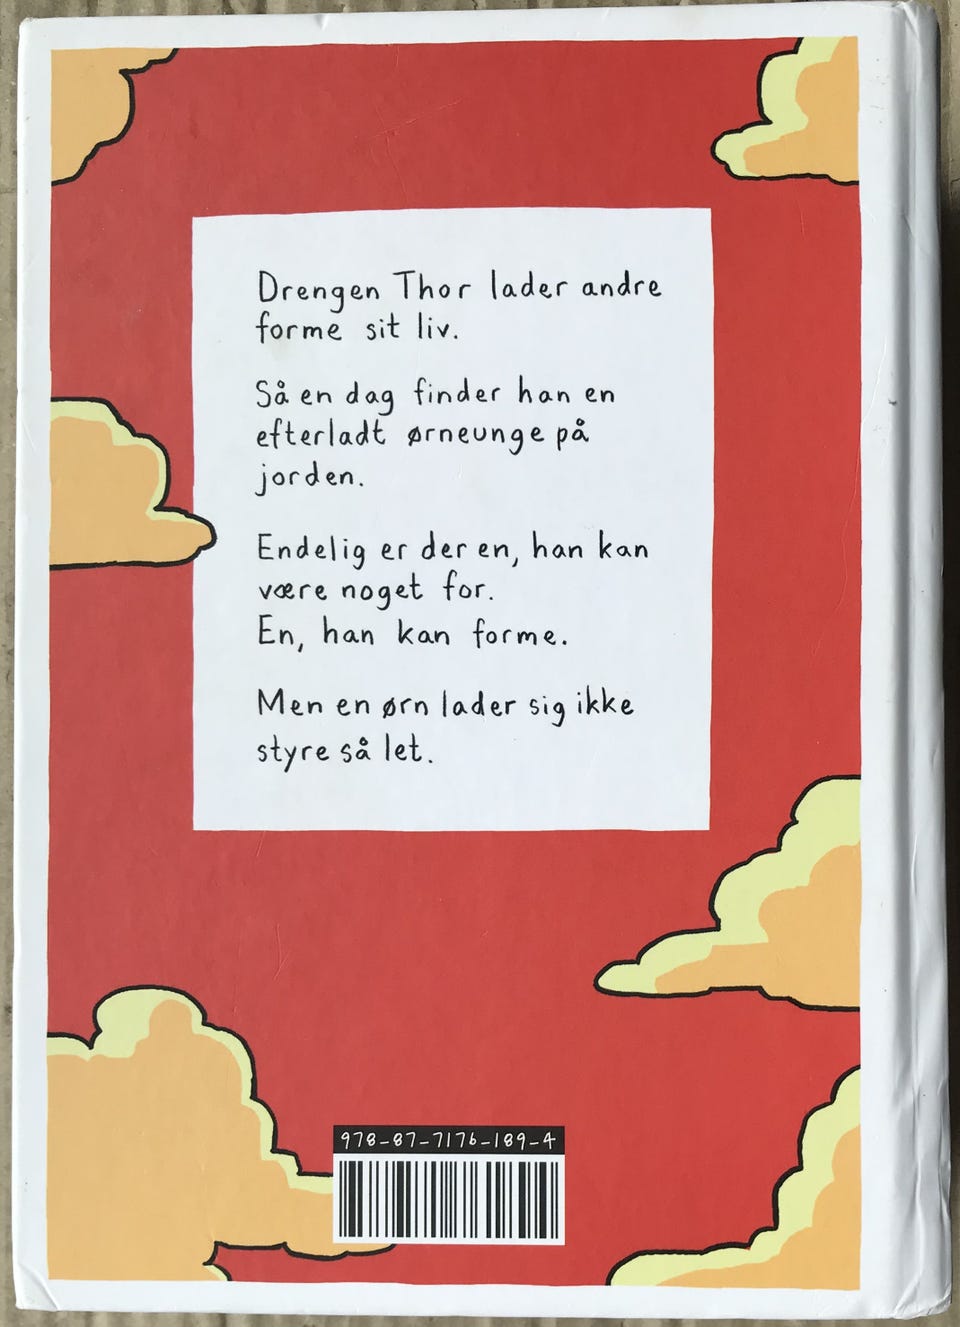 Drengen Thor lader andre
forme sit liv.
Så en dag finder han en
efterladt ørneunge på
jorden.
Endelig er der en, han kan
være noget for.
En, han kan forme.
Men en ørn lader sig ikke
styre så let.
978-87-7176-189-4